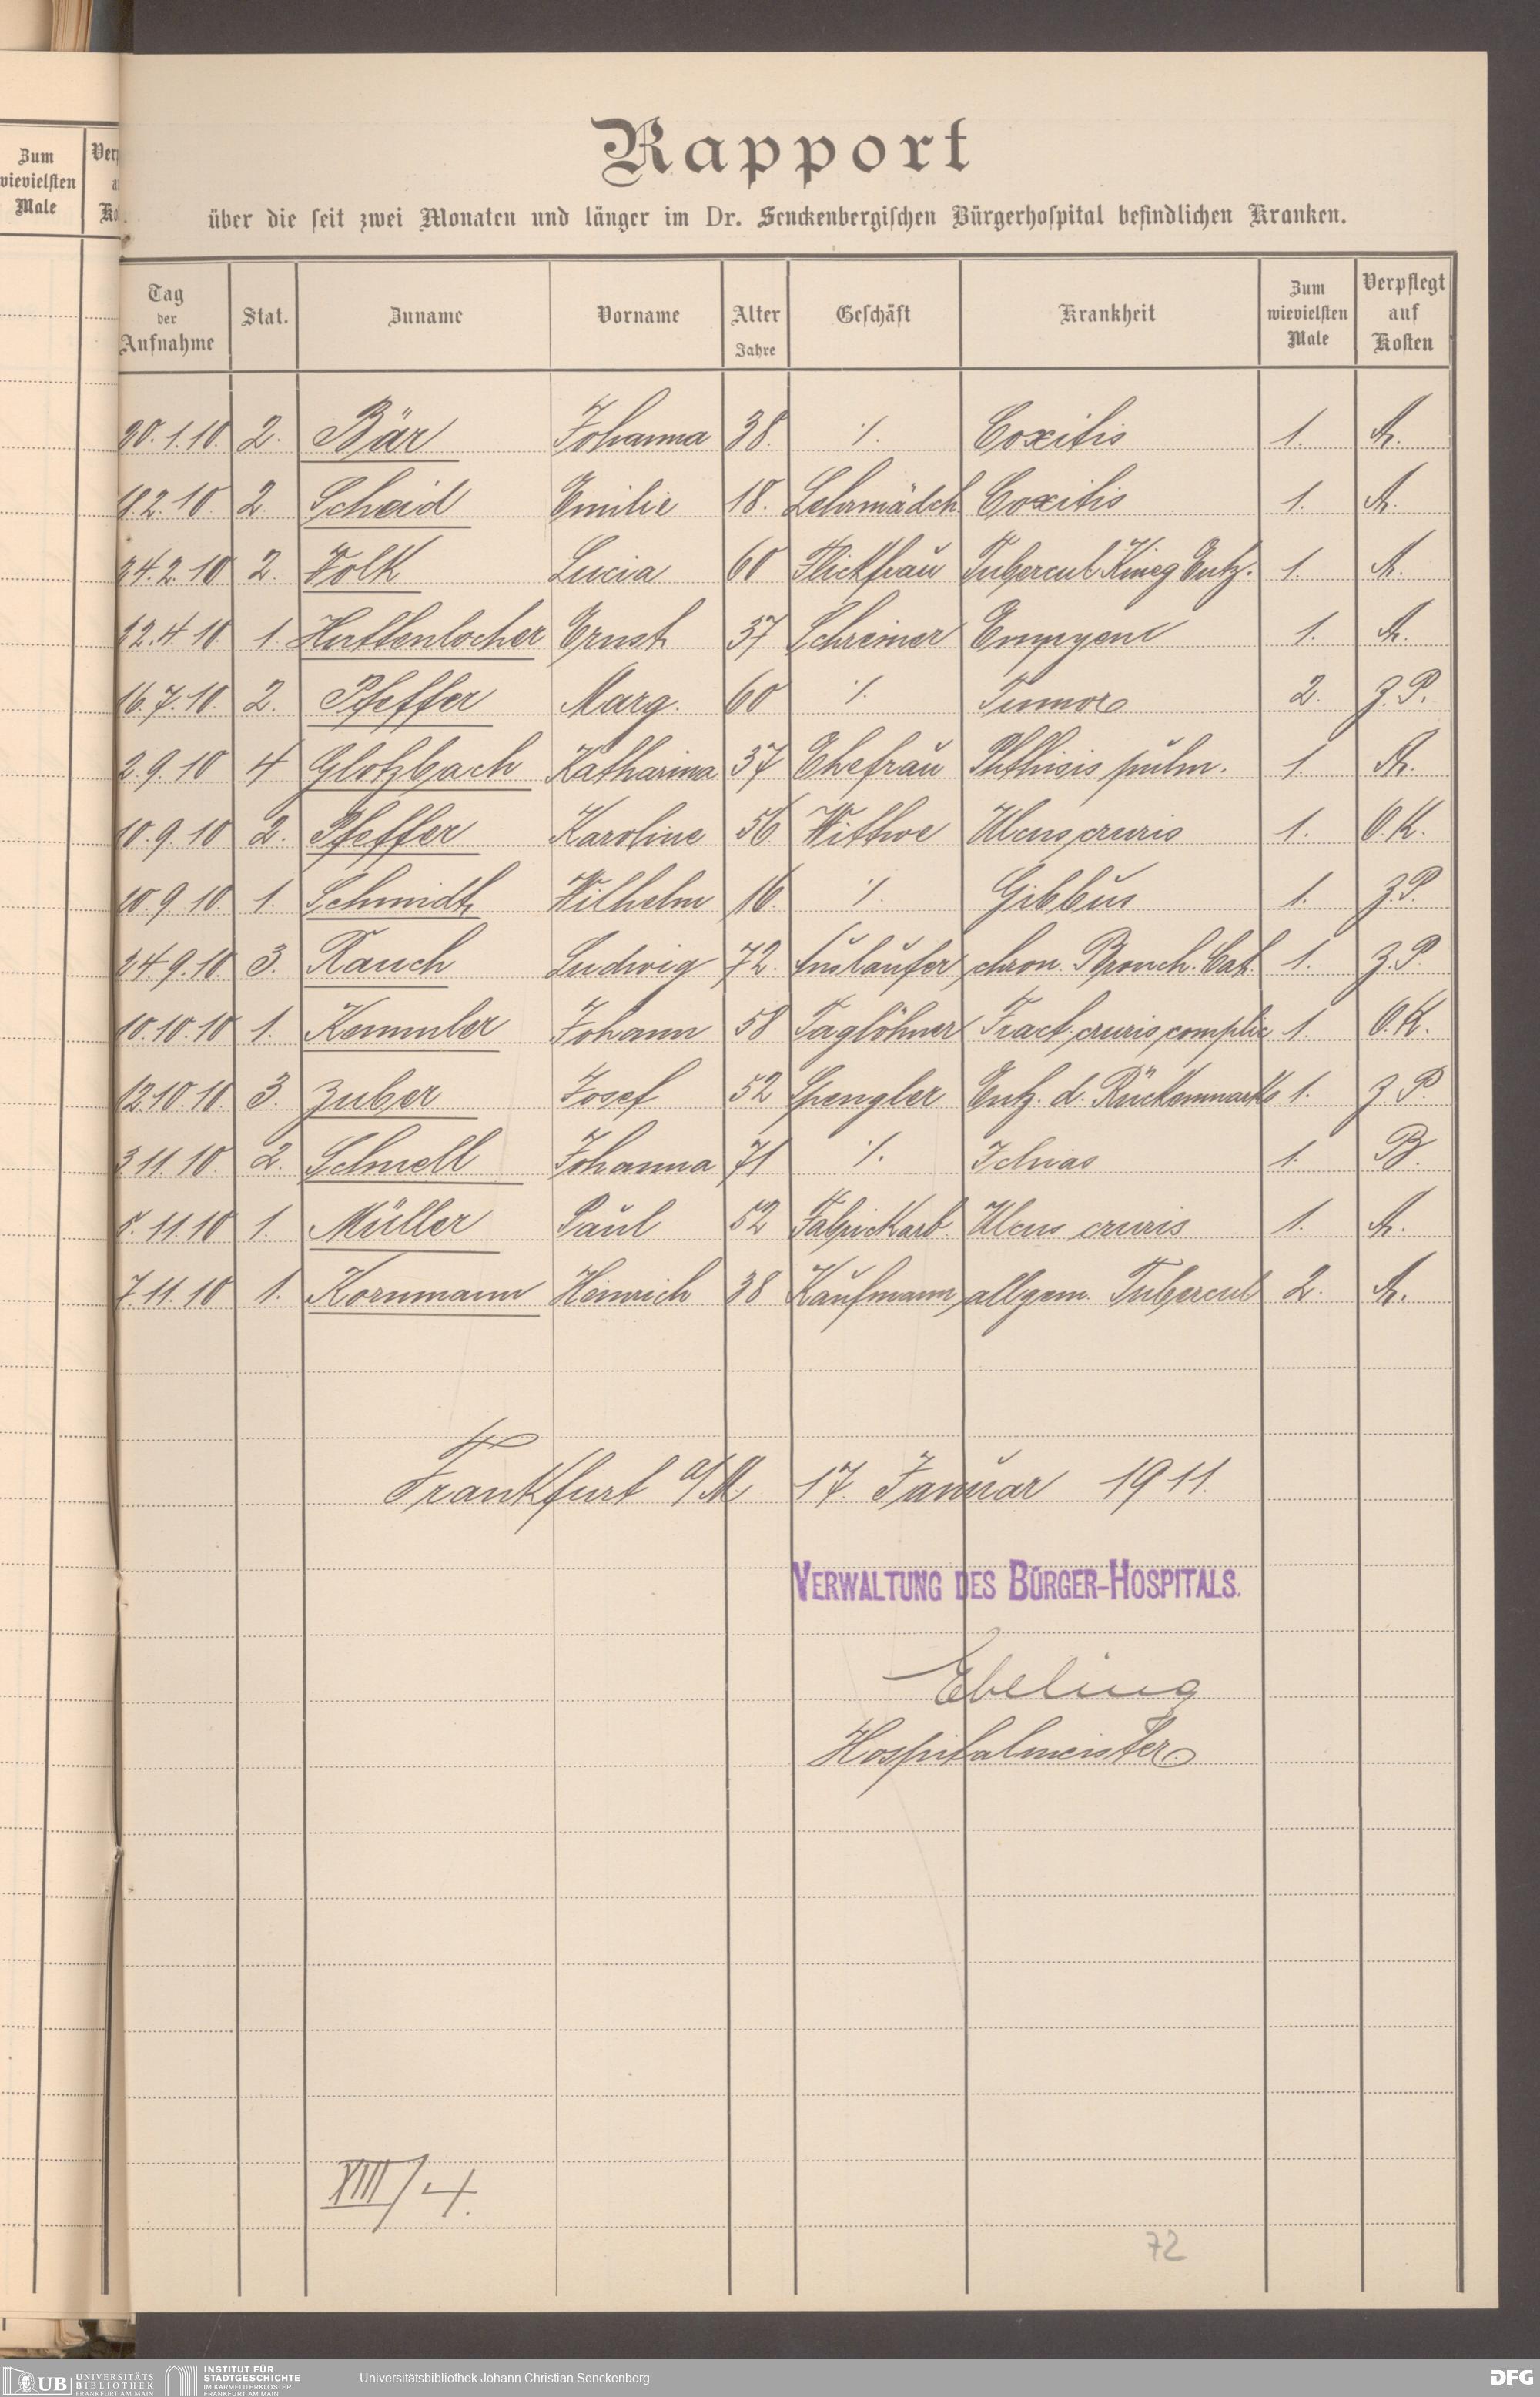 Zum
wievielsten
Male
Rapport
über die seit zwei Monaten und länger im Dr. Senckenbergischen Bürgerhospital befindlichen Kranken.
Tag der Aufnahme Stat. Zuname Vorname Alter Jahre Geschäft Krankheit Zum wievielsten Male Verpflegt auf Kosten
20.1.10. 2. Bär Johanna 38. ٪. Coxitis 1. A.
18.2.10. 2. Scheid Emilie 18. Lehrmädch. Coxitis 1. A.
24.2.10 2. Volk Lucia 60 Flickfrau Tubercul. Entz. 1. A.
12.4.10. 1. Huttenlocher Ernst 37 Schreiner Empyem 1. A.
16.7.10. 2. Pfeffer Marg. 60 ٪. Tumor 2. Z.P.
2.9.10 4 Glotzbach Katharina 37 Ehefrau Phthisis pulm. 1. A.
10.9.10 2. Pfeffer Karoline 56 Wittwe Ulcus cruris 1. O.K.
10.9.10. 1. Schmidt Wilhelm 16. ٪. Gibbus 1. Z.P.
24.9.10. 3. Rauch Ludwig 72. Ausläufer chron. Bronch. Cat. 1. Z.P.
10.10.10 1. Kemmler Johann 58 Taglöhner Fract. cruris complic 1. O.K.
12.10.10. 3. Zuber Josef 52 Spengler Entz. d. Rückenmarks 1. Z.P.
3.11.10. 2. Schnell Johanna 71 ٪. Ichias 1. B.
5.11.10 1. Müller Paul 52 Fabrickarb. Ulcus cruris 1. A.
7.11.10 1. Kornmann Heinrich 38 Kaufmann allgem. Tubercul 2. A.
Frankfurt a/M. 17. Januar 1911.
VERWALTUNG DES BÜRGER-HOSPITALS.
Ebeling
Hospitalmeister
XIII/4.
72
UB UNIVERSITÄTS BIBLIOTHEK FRANKFURT AM MAIN
INSTITUT FÜR STADTGESCHICHTE IM KARMELITERKLOSTER FRANKFURT AM MAIN
Universitätsbibliothek Johann Christian Senckenberg
DFG